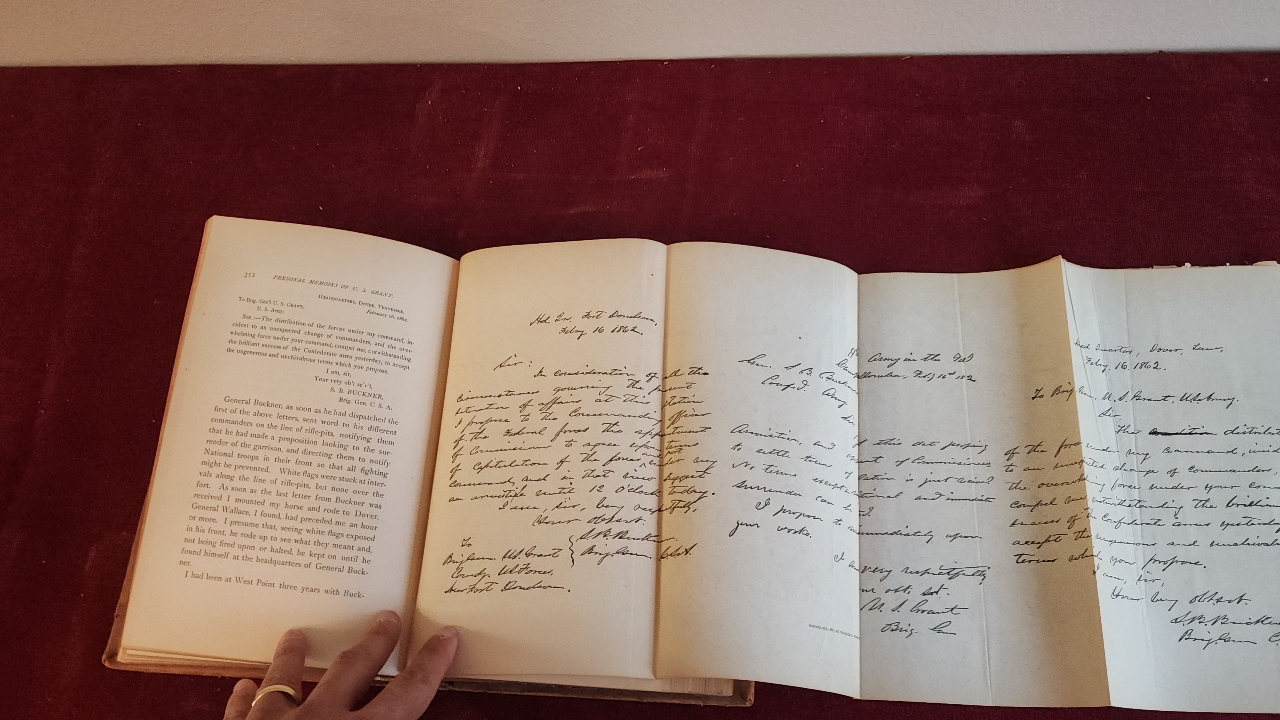 312 PERSONAL MEMOIRS OF U. S. GRANT.
HEADQUARTERS, DOVER, TENNESSEE,
February 16, 1862.
To Brig. Gen'l U. S. GRANT,
U. S. Army.
SIR:—The distribution of the forces under my command, in-
cident to an unexpected change of commanders, and the over-
whelming force under your command, compel me, notwithstanding
the brilliant success of the Confederate arms yesterday, to accept
the ungenerous and unchivalrous terms which you propose.
I am, sir,
Your very ob't se'v't,
S. B. BUCKNER,
Brig. Gen. C. S. A.
General Buckner, as soon as he had dispatched the
first of the above letters, sent word to his different
commanders on the line of rifle-pits, notifying them
that he had made a proposition looking to the sur-
render of the garrison, and directing them to notify
National troops in their front so that all fighting
might be prevented. White flags were stuck at inter-
vals along the line of rifle-pits, but none over the
fort. As soon as the last letter from Buckner was
received I mounted my horse and rode to Dover.
General Wallace, I found, had preceded me an hour
or more. I presume that, seeing white flags exposed
in his front, he rode up to see what they meant and,
not being fired upon or halted, he kept on until he
found himself at the headquarters of General Buck-
ner.
I had been at West Point three years with Buck-
Hd. Qrs. Fort Donelson,
Feby 16 1862.
Sir:
In consideration of all the
circumstances governing the present
situation of affairs at this station
I propose to the Commanding officer
of the Federal forces the appointment
of Commissioners to agree upon terms
of capitulation of the forces and fort under my
command, and in that view suggest
an armistice until 12 O'clock today.
I am, sir, very respectfully,
Your obt. servt.
S. B. Buckner
Brig. Gen. C.S.A.
To
Brig. Genl. U.S. Grant
Comdg. U.S. Forces,
Near Fort Donelson.
Army in the Field
Donelson, Feby 16th 1862
Gen. S. B. Buckner,
Confed. Army
Sir
Armistice, and
of Commissioners
to settle terms of
is just received
No terms except
and immediate
surrender can be
I propose to immediately upon
your works.
I am
very respectfully
obt. svt.
U. S. Grant
Brig. Gen
Head Quarters, Dover, Tenn,
Feby. 16. 1862.
To Brig. Gen. U. S. Grant, U.S. Army.
Sir
The
of the forces under my command,
to an unexpected change of commanders,
the overwhelming force under your
compel me, notwithstanding the brilliant
success of the Confederate arms
accept the ungenerous and
terms which you propose.
I am, sir,
Your very obt. svt.
S. B.
Brig. Gen. C